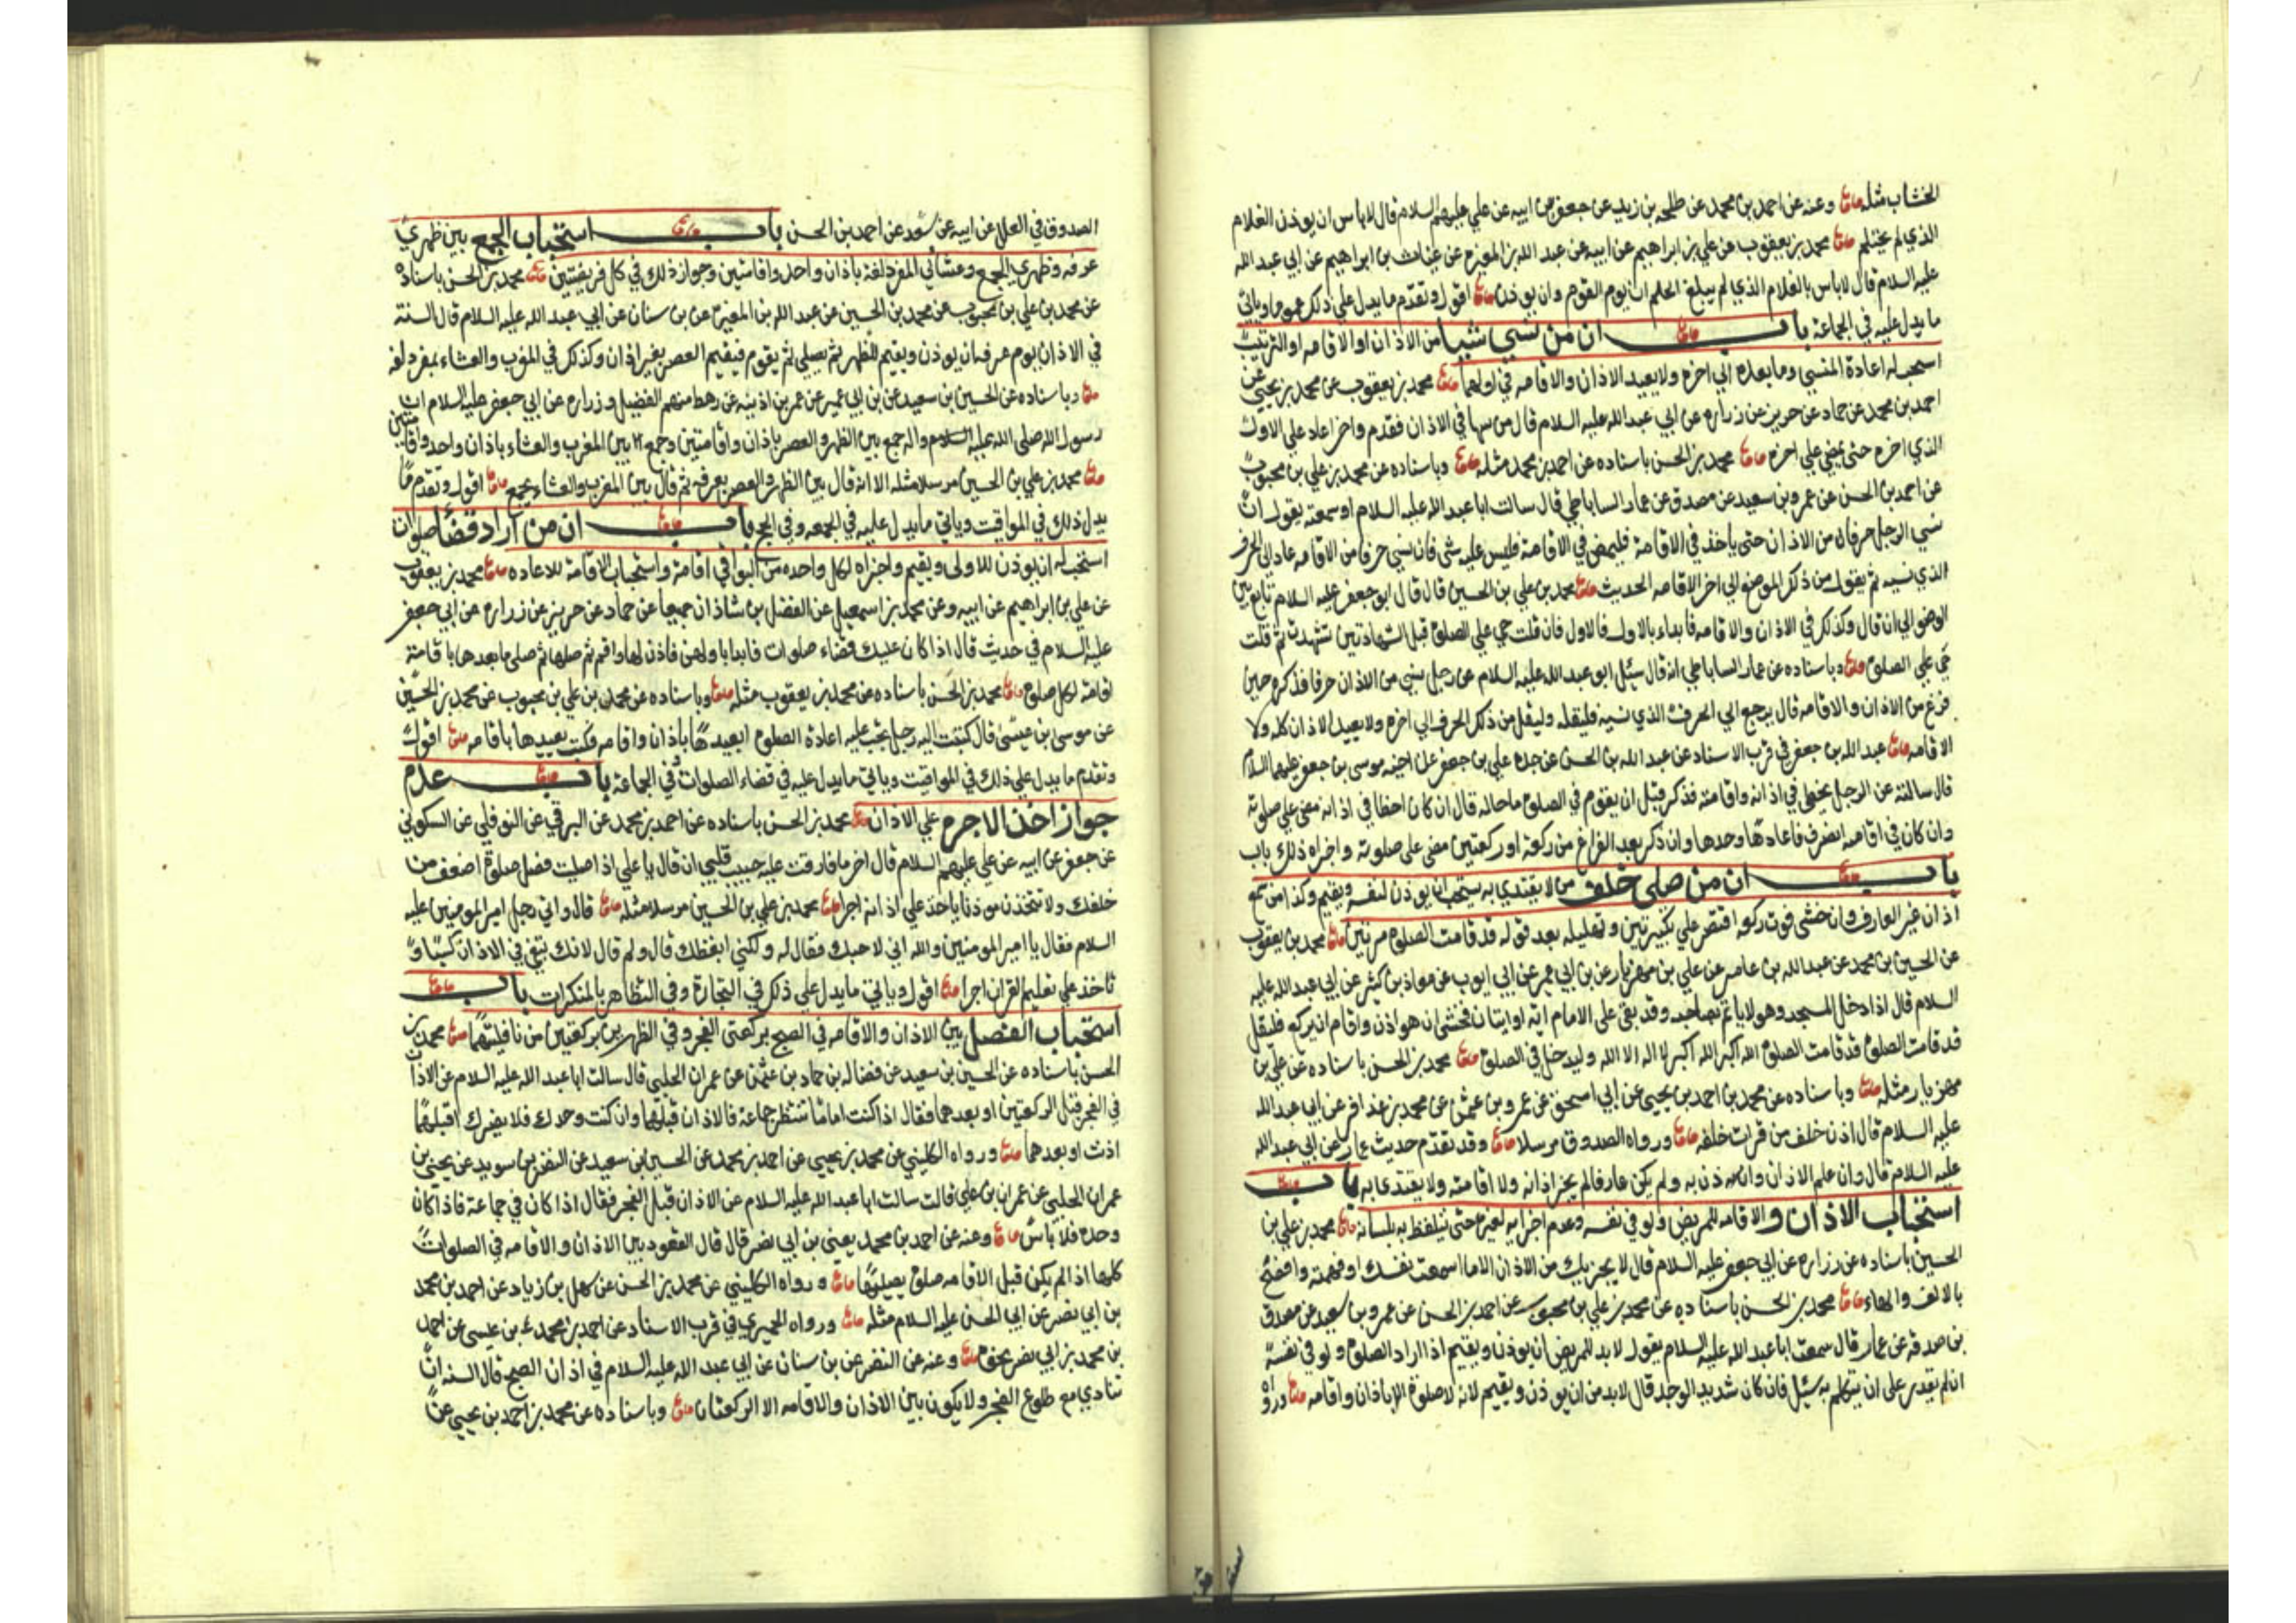 الخشاب مثله وعنه عن احمد بن محمد عن طلحه بن زيد عن جعفر عن ابيه عن علي عليهم السلام قال لا باس ان يوذن الغلام
الذي لم يحتلم محمد بن يعقوب عن علي بن ابراهيم عن ابيه عن عبد الله بن المغيره عن غياث بن ابراهيم عن ابي عبد الله
عليه السلام قال لا باس بالغلام الذي لم يبلغ الحلم ان يوم القوم وان يوذن اقول وتقدم ما يدل علي ذلك عموما وياتي
ما يدل عليه في الجماعة باب ان من نسي شيا من الاذان او الاقامه او الترتيب
استحب له اعادة المنسي وما بعده الي اخره ولا يعيد الاذان والاقامه في اولهما محمد بن يعقوب عن محمد بن يحيي عن
احمد بن محمد عن حماد عن حريز عن زراره عن ابي عبد الله عليه السلام قال من سها في الاذان فقدم واخر اعاد علي الاول
الذي اخره حتى يمضي علي اخره محمد بن الحسن باسناده عن احمد بن محمد مثله وباسناده عن محمد بن علي بن محبوب
عن احمد بن الحسن عن عمرو بن سعيد عن مصدق عن عمار الساباطي قال سالت ابا عبد الله عليه السلام او سمعته يقول ان
نسي الرجل حرفا من الاذان حتى ياخذ في الاقامة فليمض في الاقامة فليس عليه شي فان نسي حرفا من الاقامه عاد الي الحرف
الذي نسيه ثم يقول من ذلك الموضع الي اخر الاقامه الحديث محمد بن علي بن الحسين قال قال ابو جعفر عليه السلام تابع بين
الوضو الي ان قال وكذلك في الاذان والاقامه فابداء بالاول فالاول فان قلت حي علي الصلوة قبل الشهادتين تشهدت ثم قلت
حي علي الصلوة وباسناده عن عمار الساباطي انه قال سئل ابو عبد الله عليه السلام عن رجل نسي من الاذان حرفا فذكره حين
فرغ من الاذان والاقامه قال يرجع الي الحرف الذي نسيه فليقله وليقل من ذلك الحرف الي اخره ولا يعيد الاذان كله ولا
الاقامه عبد الله بن جعفر في قرب الاسناد عن عبد الله بن الحسن عن جده علي بن جعفر عن اخيه موسى بن جعفر عليهما السلام
قال سالته عن الرجل يخطي في اذانه واقامته فذكر قبل ان يقوم في الصلوة ما حاله قال ان كان اخطا في اذانه مضي علي صلوته
وان كان في اقامه انصرف فاعادها وحدها وان ذكر بعد الفراغ من ركعة او ركعتين مضى على صلوته واجزاه ذلك باب
باب ان من صلى خلف من لا يقتدي به يستحب ان يوذن لنفسه ويقيم وكذا من سمع
اذان غير العارف وان خشى فوت ركوع اقتصر علي تكبيرتين وتهليله بعد قوله قد قامت الصلوة مرتين محمد بن يعقوب
عن الحسين بن محمد عن عبد الله بن عامر عن علي بن مهزيار عن بن ابي عمير عن ابي ايوب عن معاذ بن كثير عن ابي عبد الله عليه
السلام قال اذا دخل المسجد وهو لا ياتم بصاحبه وقد بقى على الامام ايه او ايتان فخشى ان هو اذن واقام ان يركع فليقل
قد قامت الصلوة قد قامت الصلوة الله اكبر الله اكبر لا اله الا الله وليدخل في الصلوة محمد بن الحسن باسناده عن علي بن
مهزيار مثله وباسناده عن محمد بن احمد بن يحيي عن ابي اسحق عن عمرو بن عثمن عن محمد بن عذافر عن ابي عبد الله
عليه السلام قال اذن خلف من قرات خلفه ورواه الصدوق مرسلا وقد تقدم حديث عمار عن ابي عبد الله
عليه السلام قال وان علم الاذان واذن به ولم يكن عارفا لم يجز اذانه ولا اقامته ولا يقتدى به باب
استحباب الاذان والاقامه للمريض ولو في نفسه وعدم اجزايه لغيره حتى يتلفظ به بلسانه محمد بن علي بن
الحسين باسناده عن زراره عن ابي جعفر عليه السلام قال لا يجزيك من الاذان الا ما اسمعت نفسك او فهمته وافصح
بالالف والهاء محمد بن الحسن باسناده عن محمد بن علي بن محبوب عن احمد بن الحسن عن عمرو بن سعيد عن مصدق
بن صدقه عن عمار قال سمعت ابا عبد الله عليه السلام يقول لا بد للمريض ان يوذن ويقيم اذا اراد الصلوة ولو في نفسه
ان لم يقدر على ان يتكلم به سئل فان كان شديد الوجع قال لا بد من ان يوذن ويقيم لانه لا صلوة الا باذان واقامه ورواه
الصدوق في العلل عن ابيه عن سعد عن احمد بن الحسن باب استحباب الجمع بين ظهري
عرفه وظهري الجمع وعشائي المزدلفة باذان واحد واقامتين وجواز ذلك في كل فريضتين محمد بن الحسن باسناده
عن محمد بن علي بن محبوب عن محمد بن الحسين عن عبد الله بن المغيره عن بن سنان عن ابي عبد الله عليه السلام قال السنة
في الاذان يوم عرفه ان يوذن ويقيم للظهر ثم يصلي ثم يقوم فيقيم العصر بغير اذان وكذلك في المغرب والعشاء بمزدلفه
وباسناده عن الحسين بن سعيد عن بن ابي عمير عن عمر بن اذينه عن رهط منهم الفضيل وزراره عن ابي جعفر عليه السلام ان
رسول الله صلى الله عليه واله جمع بين الظهر والعصر باذان واقامتين وجمع بين المغرب والعشاء باذان واحد واقامتين
محمد بن علي بن الحسين مرسلا مثله الا انه قال بين الظهر والعصر بعرفه ثم قال بين المغرب والعشاء بجمع اقول وتقدم ما
يدل ذلك في المواقيت وياتي ما يدل عليه في الجمعه وفي الحج باب ان من اراد قضا صلوات
استحب له ان يوذن للاولى ويقيم واجزاه لكل واحده من البواقي اقامة واستحباب الاقامة للاعاده محمد بن يعقوب
عن علي بن ابراهيم عن ابيه وعن محمد بن اسمعيل عن الفضل بن شاذان جميعا عن حماد عن حريز عن زراره عن ابي جعفر
عليه السلام في حديث قال اذا كان عليك قضاء صلوات فابدا باولهن فاذن لها واقم ثم صلها ثم صلي ما بعدها باقامة
اقامة لكل صلوة محمد بن الحسن باسناده عن محمد بن يعقوب مثله وباسناده عن محمد بن علي بن محبوب عن محمد بن الحسين
عن موسى بن عيسى قال كتبت اليه رجل يجب عليه اعادة الصلوة ايعيدها باذان واقامه فكتب يعيدها باقامه اقول
وتقدم ما يدل علي ذلك في المواقيت وياتي ما يدل عليه في قضاء الصلوات في الجماعة باب عدم
جواز اخذ الاجره علي الاذان محمد بن الحسن باسناده عن احمد بن محمد عن البرقي عن النوفلي عن السكوني
عن جعفر عن ابيه عن علي عليهم السلام قال اخر ما فارقت عليه حبيب قلبي ان قال يا علي اذا صليت فصل صلوة اضعف من
خلفك ولا تتخذن موذنا ياخذ علي اذانه اجرا محمد بن علي بن الحسين مرسلا مثله قال واتي رجل امير المومنين عليه
السلام فقال يا امير المومنين والله اني لاحبك فقال له ولكني ابغضك قال ولم قال لانك تبغي في الاذان كسبا و
تاخذ علي تعليم القران اجرا اقول وياتي ما يدل علي ذلك في التجارة وفي التظاهر بالمنكرات باب
استحباب الفصل بين الاذان والاقامه في الصبح بركعتي الفجر وفي الظهرين بركعتين من نافلتهما محمد بن
الحسن باسناده عن الحسين بن سعيد عن فضاله بن حماد بن عثمن عن عمران الحلبي قال سالت ابا عبد الله عليه السلام عن الاذان
في الفجر قبل الركعتين او بعدهما فقال اذا كنت اماما تنتظر جماعة فالاذان قبلهما وان كنت وحدك فلا يضرك اقبلهما
اذنت او بعدهما ورواه الكليني عن محمد بن يحيي عن احمد بن محمد عن الحسين بن سعيد عن النضر بن سويد عن يحيى بن
عمران الحلبي عن عمران بن علي قالت سالت ابا عبد الله عليه السلام عن الاذان قبل الفجر فقال اذا كان في جماعة فاذا كان
وحده فلا باس وعنه عن احمد بن محمد يعني بن ابي نصر قال قال القعود بين الاذان والاقامه في الصلوات
كلها اذا لم يكن قبل الاقامه صلوة يصليها ورواه الكليني عن محمد بن الحسن عن سهل بن زياد عن احمد بن محمد
بن ابي نصر عن ابي الحسن عليه السلام مثله ورواه الحميري في قرب الاسناد عن احمد بن محمد بن عيسى عن احمد
بن محمد بن ابي نصر نحوه وعنه عن النضر عن بن سنان عن ابي عبد الله عليه السلام في اذان الصبح قال السنه ان
تنادي مع طلوع الفجر ولا يكون بين الاذان والاقامه الا الركعتان وباسناده عن محمد بن احمد بن يحيي عن